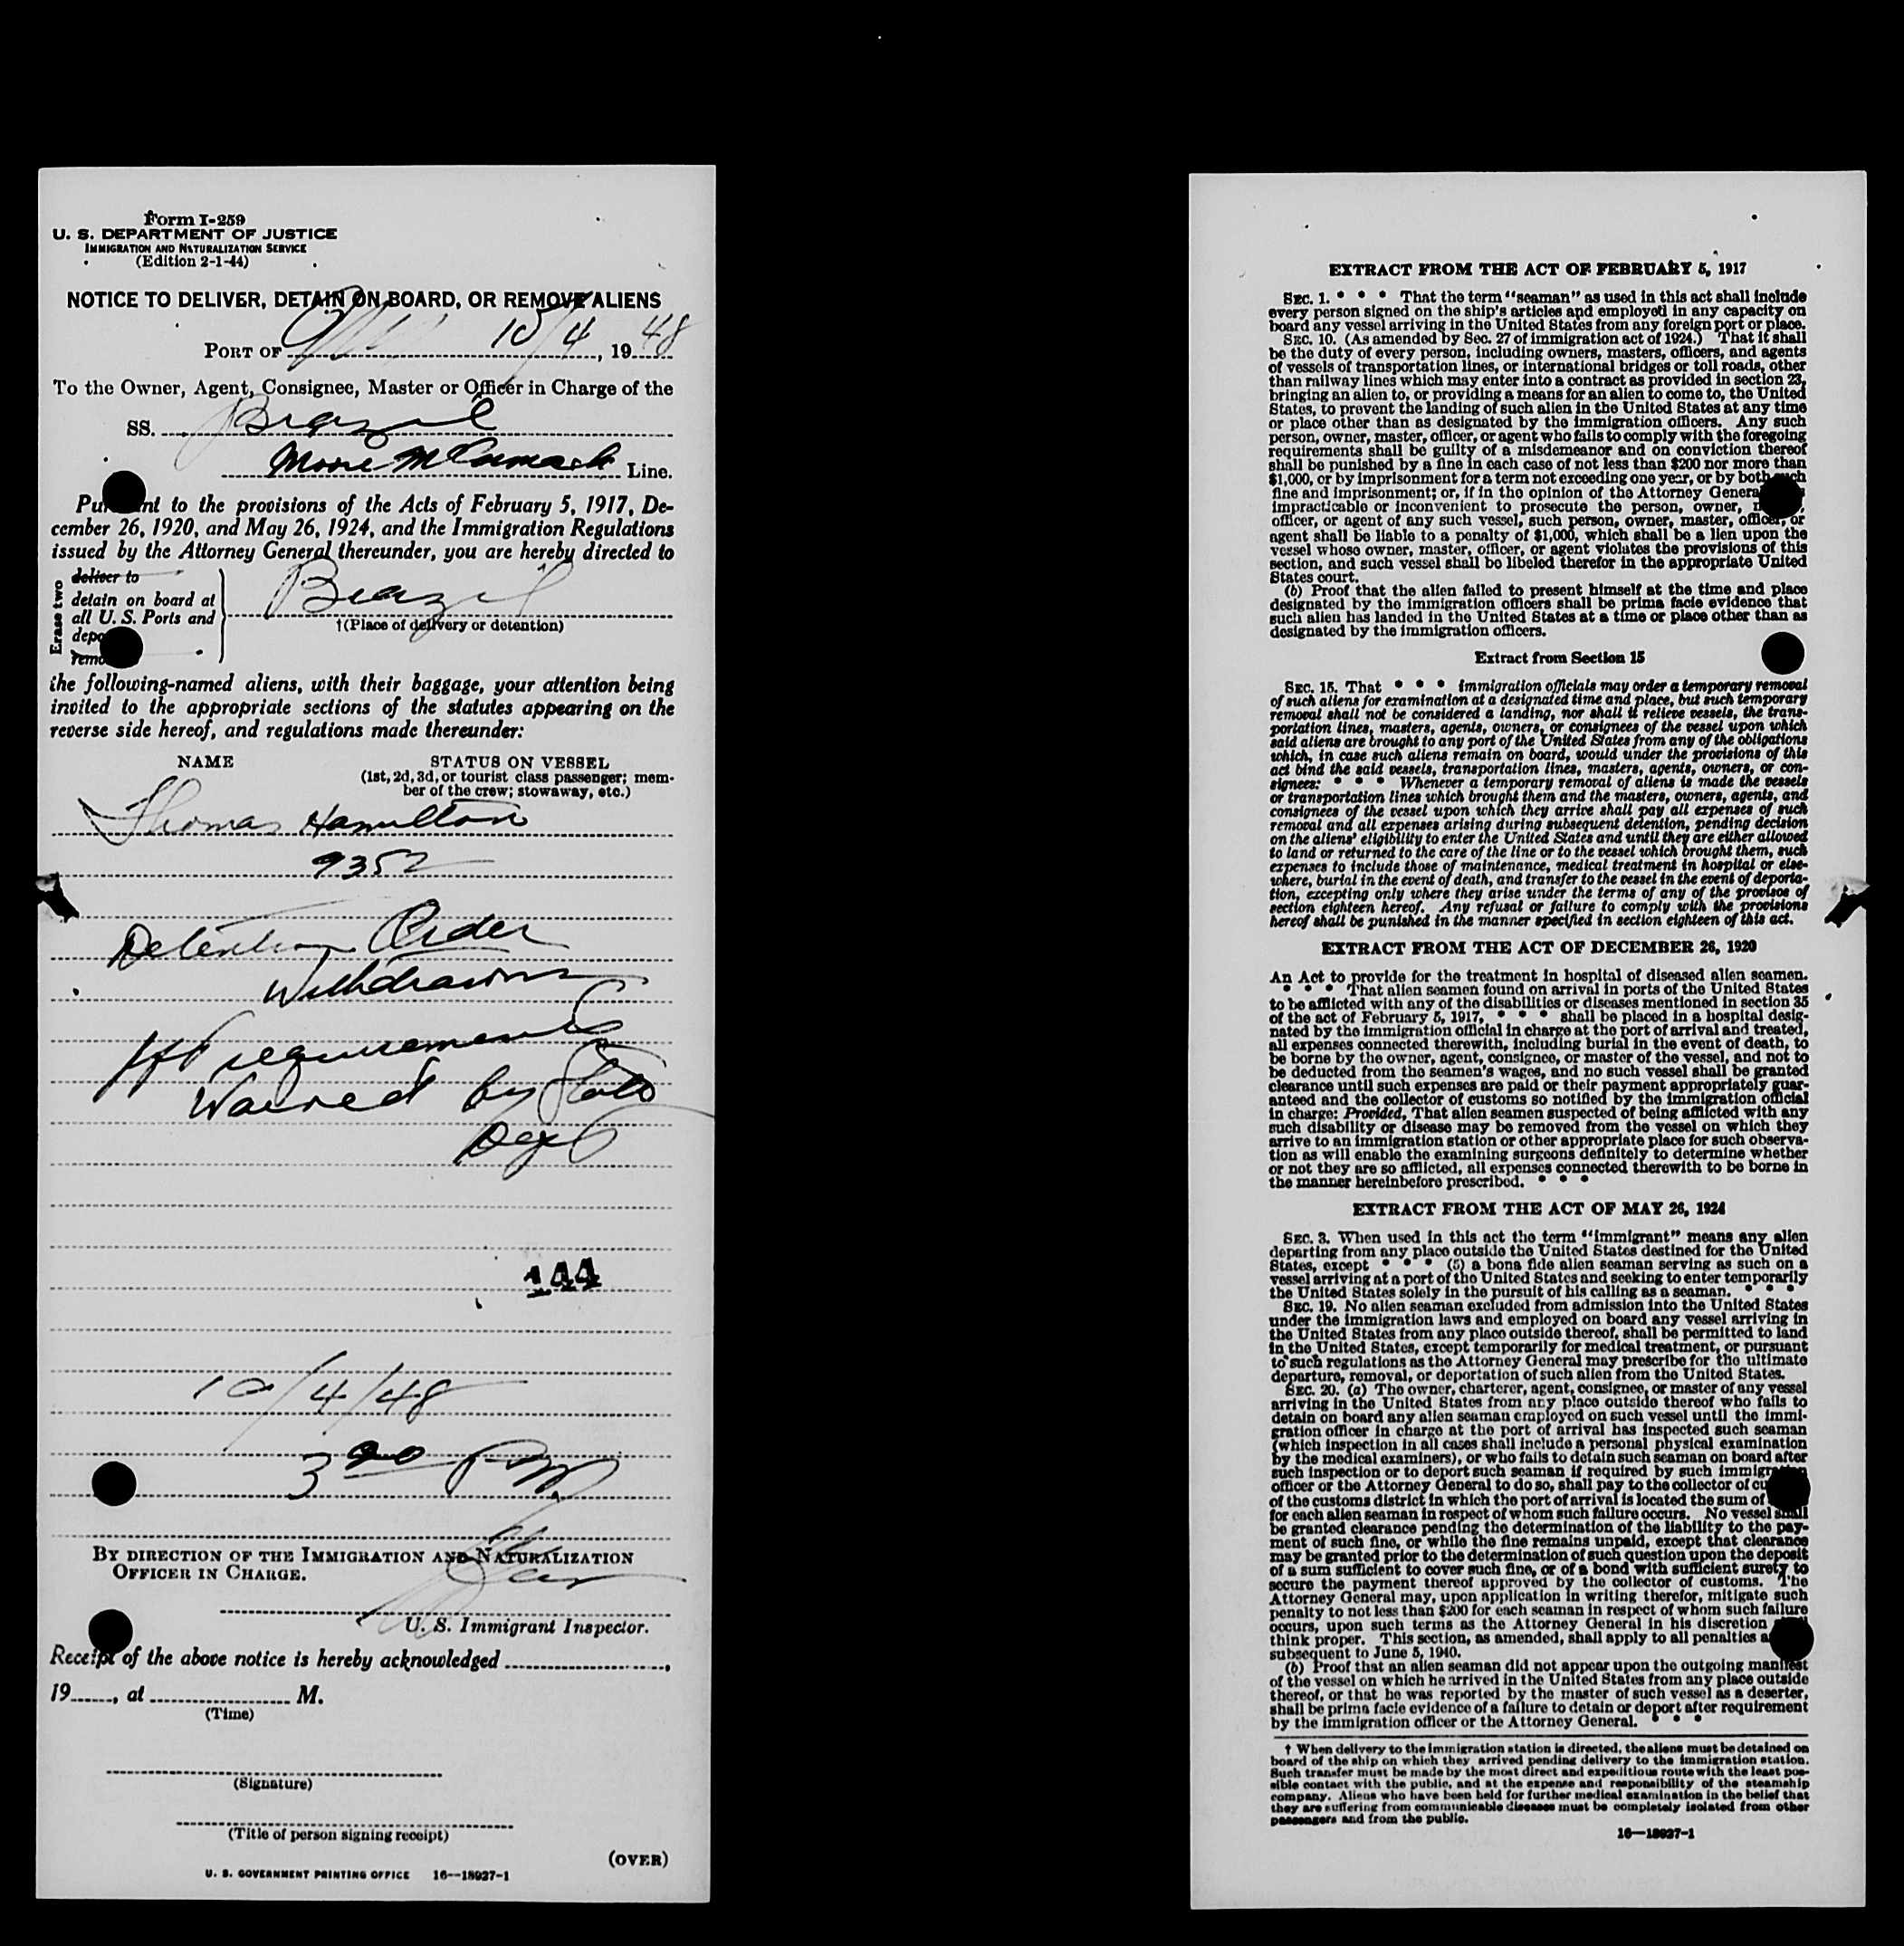 Form I-259
U. S. DEPARTMENT OF JUSTICE
IMMIGRATION AND NATURALIZATION SERVICE
(Edition 2-1-44)
NOTICE TO DELIVER, DETAIN ON BOARD, OR REMOVE ALIENS
PORT OF 10/4, 1948
To the Owner, Agent, Consignee, Master or Officer in Charge of the
SS. Brazil
Moore McCormack Line.
Pursuant to the provisions of the Acts of February 5, 1917, De-
cember 26, 1920, and May 26, 1924, and the Immigration Regulations
issued by the Attorney General thereunder, you are hereby directed to
Erase two
deliver to
detain on board at
all U. S. Ports and
depo
remo
Brazil
†(Place of delivery or detention)
the following-named aliens, with their baggage, your attention being
invited to the appropriate sections of the statutes appearing on the
reverse side hereof, and regulations made thereunder:
NAME STATUS ON VESSEL
(1st, 2d, 3d, or tourist class passenger; mem-
ber of the crew; stowaway, etc.)
Thomas Hamilton
9352
Detention Order
Withdrawn
requirements
Waived by State
Dept
144
10/4/48
3 00 PM
BY DIRECTION OF THE IMMIGRATION AND NATURALIZATION
OFFICER IN CHARGE.
U. S. Immigrant Inspector.
Receipt of the above notice is hereby acknowledged ,
19 , at M.
(Time)
(Signature)
(Title of person signing receipt)
(OVER)
U. S. GOVERNMENT PRINTING OFFICE 16—18027-1
EXTRACT FROM THE ACT OF FEBRUARY 5, 1917
SEC. 1. * * * That the term "seaman" as used in this act shall include
every person signed on the ship's articles and employed in any capacity on
board any vessel arriving in the United States from any foreign port or place.
SEC. 10. (As amended by Sec. 27 of immigration act of 1924.) That it shall
be the duty of every person, including owners, masters, officers, and agents
of vessels of transportation lines, or international bridges or toll roads, other
than railway lines which may enter into a contract as provided in section 23,
bringing an alien to, or providing a means for an alien to come to, the United
States, to prevent the landing of such alien in the United States at any time
or place other than as designated by the immigration officers. Any such
person, owner, master, officer, or agent who fails to comply with the foregoing
requirements shall be guilty of a misdemeanor and on conviction thereof
shall be punished by a fine in each case of not less than $200 nor more than
$1,000, or by imprisonment for a term not exceeding one year, or by both such
fine and imprisonment; or, if in the opinion of the Attorney General
impracticable or inconvenient to prosecute the person, owner,
officer, or agent of any such vessel, such person, owner, master, officer, or
agent shall be liable to a penalty of $1,000, which shall be a lien upon the
vessel whose owner, master, officer, or agent violates the provisions of this
section, and such vessel shall be libeled therefor in the appropriate United
States court.
(b) Proof that the alien failed to present himself at the time and place
designated by the immigration officers shall be prima facie evidence that
such alien has landed in the United States at a time or place other than as
designated by the immigration officers.
Extract from Section 15
SEC. 15. That * * * immigration officials may order a temporary removal
of such aliens for examination at a designated time and place, but such temporary
removal shall not be considered a landing, nor shall it relieve vessels, the trans-
portation lines, masters, agents, owners, or consignees of the vessel upon which
said aliens are brought to any port of the United States from any of the obligations
which, in case such aliens remain on board, would under the provisions of this
act bind the said vessels, transportation lines, masters, agents, owners, or con-
signees: * * * Whenever a temporary removal of aliens is made the vessels
or transportation lines which brought them and the masters, owners, agents, and
consignees of the vessel upon which they arrive shall pay all expenses of such
removal and all expenses arising during subsequent detention, pending decision
on the aliens' eligibility to enter the United States and until they are either allowed
to land or returned to the care of the line or to the vessel which brought them, such
expenses to include those of maintenance, medical treatment in hospital or else-
where, burial in the event of death, and transfer to the vessel in the event of deporta-
tion, excepting only where they arise under the terms of any of the provisos of
section eighteen hereof. Any refusal or failure to comply with the provisions
hereof shall be punished in the manner specified in section eighteen of this act.
EXTRACT FROM THE ACT OF DECEMBER 26, 1920
An Act to provide for the treatment in hospital of diseased alien seamen.
* * * That alien seamen found on arrival in ports of the United States
to be afflicted with any of the disabilities or diseases mentioned in section 35
of the act of February 5, 1917, * * * shall be placed in a hospital desig-
nated by the immigration official in charge at the port of arrival and treated,
all expenses connected therewith, including burial in the event of death, to
be borne by the owner, agent, consignee, or master of the vessel, and not to
be deducted from the seamen's wages, and no such vessel shall be granted
clearance until such expenses are paid or their payment appropriately guar-
anteed and the collector of customs so notified by the immigration official
in charge: Provided, That alien seamen suspected of being afflicted with any
such disability or disease may be removed from the vessel on which they
arrive to an immigration station or other appropriate place for such observa-
tion as will enable the examining surgeons definitely to determine whether
or not they are so afflicted, all expenses connected therewith to be borne in
the manner hereinbefore prescribed. * * *
EXTRACT FROM THE ACT OF MAY 26, 1924
SEC. 3. When used in this act the term "immigrant" means any alien
departing from any place outside the United States destined for the United
States, except * * * (5) a bona fide alien seaman serving as such on a
vessel arriving at a port of the United States and seeking to enter temporarily
the United States solely in the pursuit of his calling as a seaman. * * *
SEC. 19. No alien seaman excluded from admission into the United States
under the immigration laws and employed on board any vessel arriving in
the United States from any place outside thereof, shall be permitted to land
in the United States, except temporarily for medical treatment, or pursuant
to such regulations as the Attorney General may prescribe for the ultimate
departure, removal, or deportation of such alien from the United States.
SEC. 20. (a) The owner, charterer, agent, consignee, or master of any vessel
arriving in the United States from any place outside thereof who fails to
detain on board any alien seaman employed on such vessel until the immi-
gration officer in charge at the port of arrival has inspected such seaman
(which inspection in all cases shall include a personal physical examination
by the medical examiners), or who fails to detain such seaman on board after
such inspection or to deport such seaman if required by such immigration
officer or the Attorney General to do so, shall pay to the collector of cu
of the customs district in which the port of arrival is located the sum of
for each alien seaman in respect of whom such failure occurs. No vessel shall
be granted clearance pending the determination of the liability to the pay-
ment of such fine, or while the fine remains unpaid, except that clearance
may be granted prior to the determination of such question upon the deposit
of a sum sufficient to cover such fine, or of a bond with sufficient surety to
secure the payment thereof approved by the collector of customs. The
Attorney General may, upon application in writing therefor, mitigate such
penalty to not less than $200 for each seaman in respect of whom such failure
occurs, upon such terms as the Attorney General in his discretion
think proper. This section, as amended, shall apply to all penalties a
subsequent to June 5, 1940.
(b) Proof that an alien seaman did not appear upon the outgoing manifest
of the vessel on which he arrived in the United States from any place outside
thereof, or that he was reported by the master of such vessel as a deserter,
shall be prima facie evidence of a failure to detain or deport after requirement
by the immigration officer or the Attorney General. * * *
† When delivery to the immigration station is directed, the aliens must be detained on
board of the ship on which they arrived pending delivery to the immigration station.
Such transfer must be made by the most direct and expeditious route with the least pos-
sible contact with the public, and at the expense and responsibility of the steamship
company. Aliens who have been held for further medical examination in the belief that
they are suffering from communicable diseases must be completely isolated from other
passengers and from the public.
16—18027-1